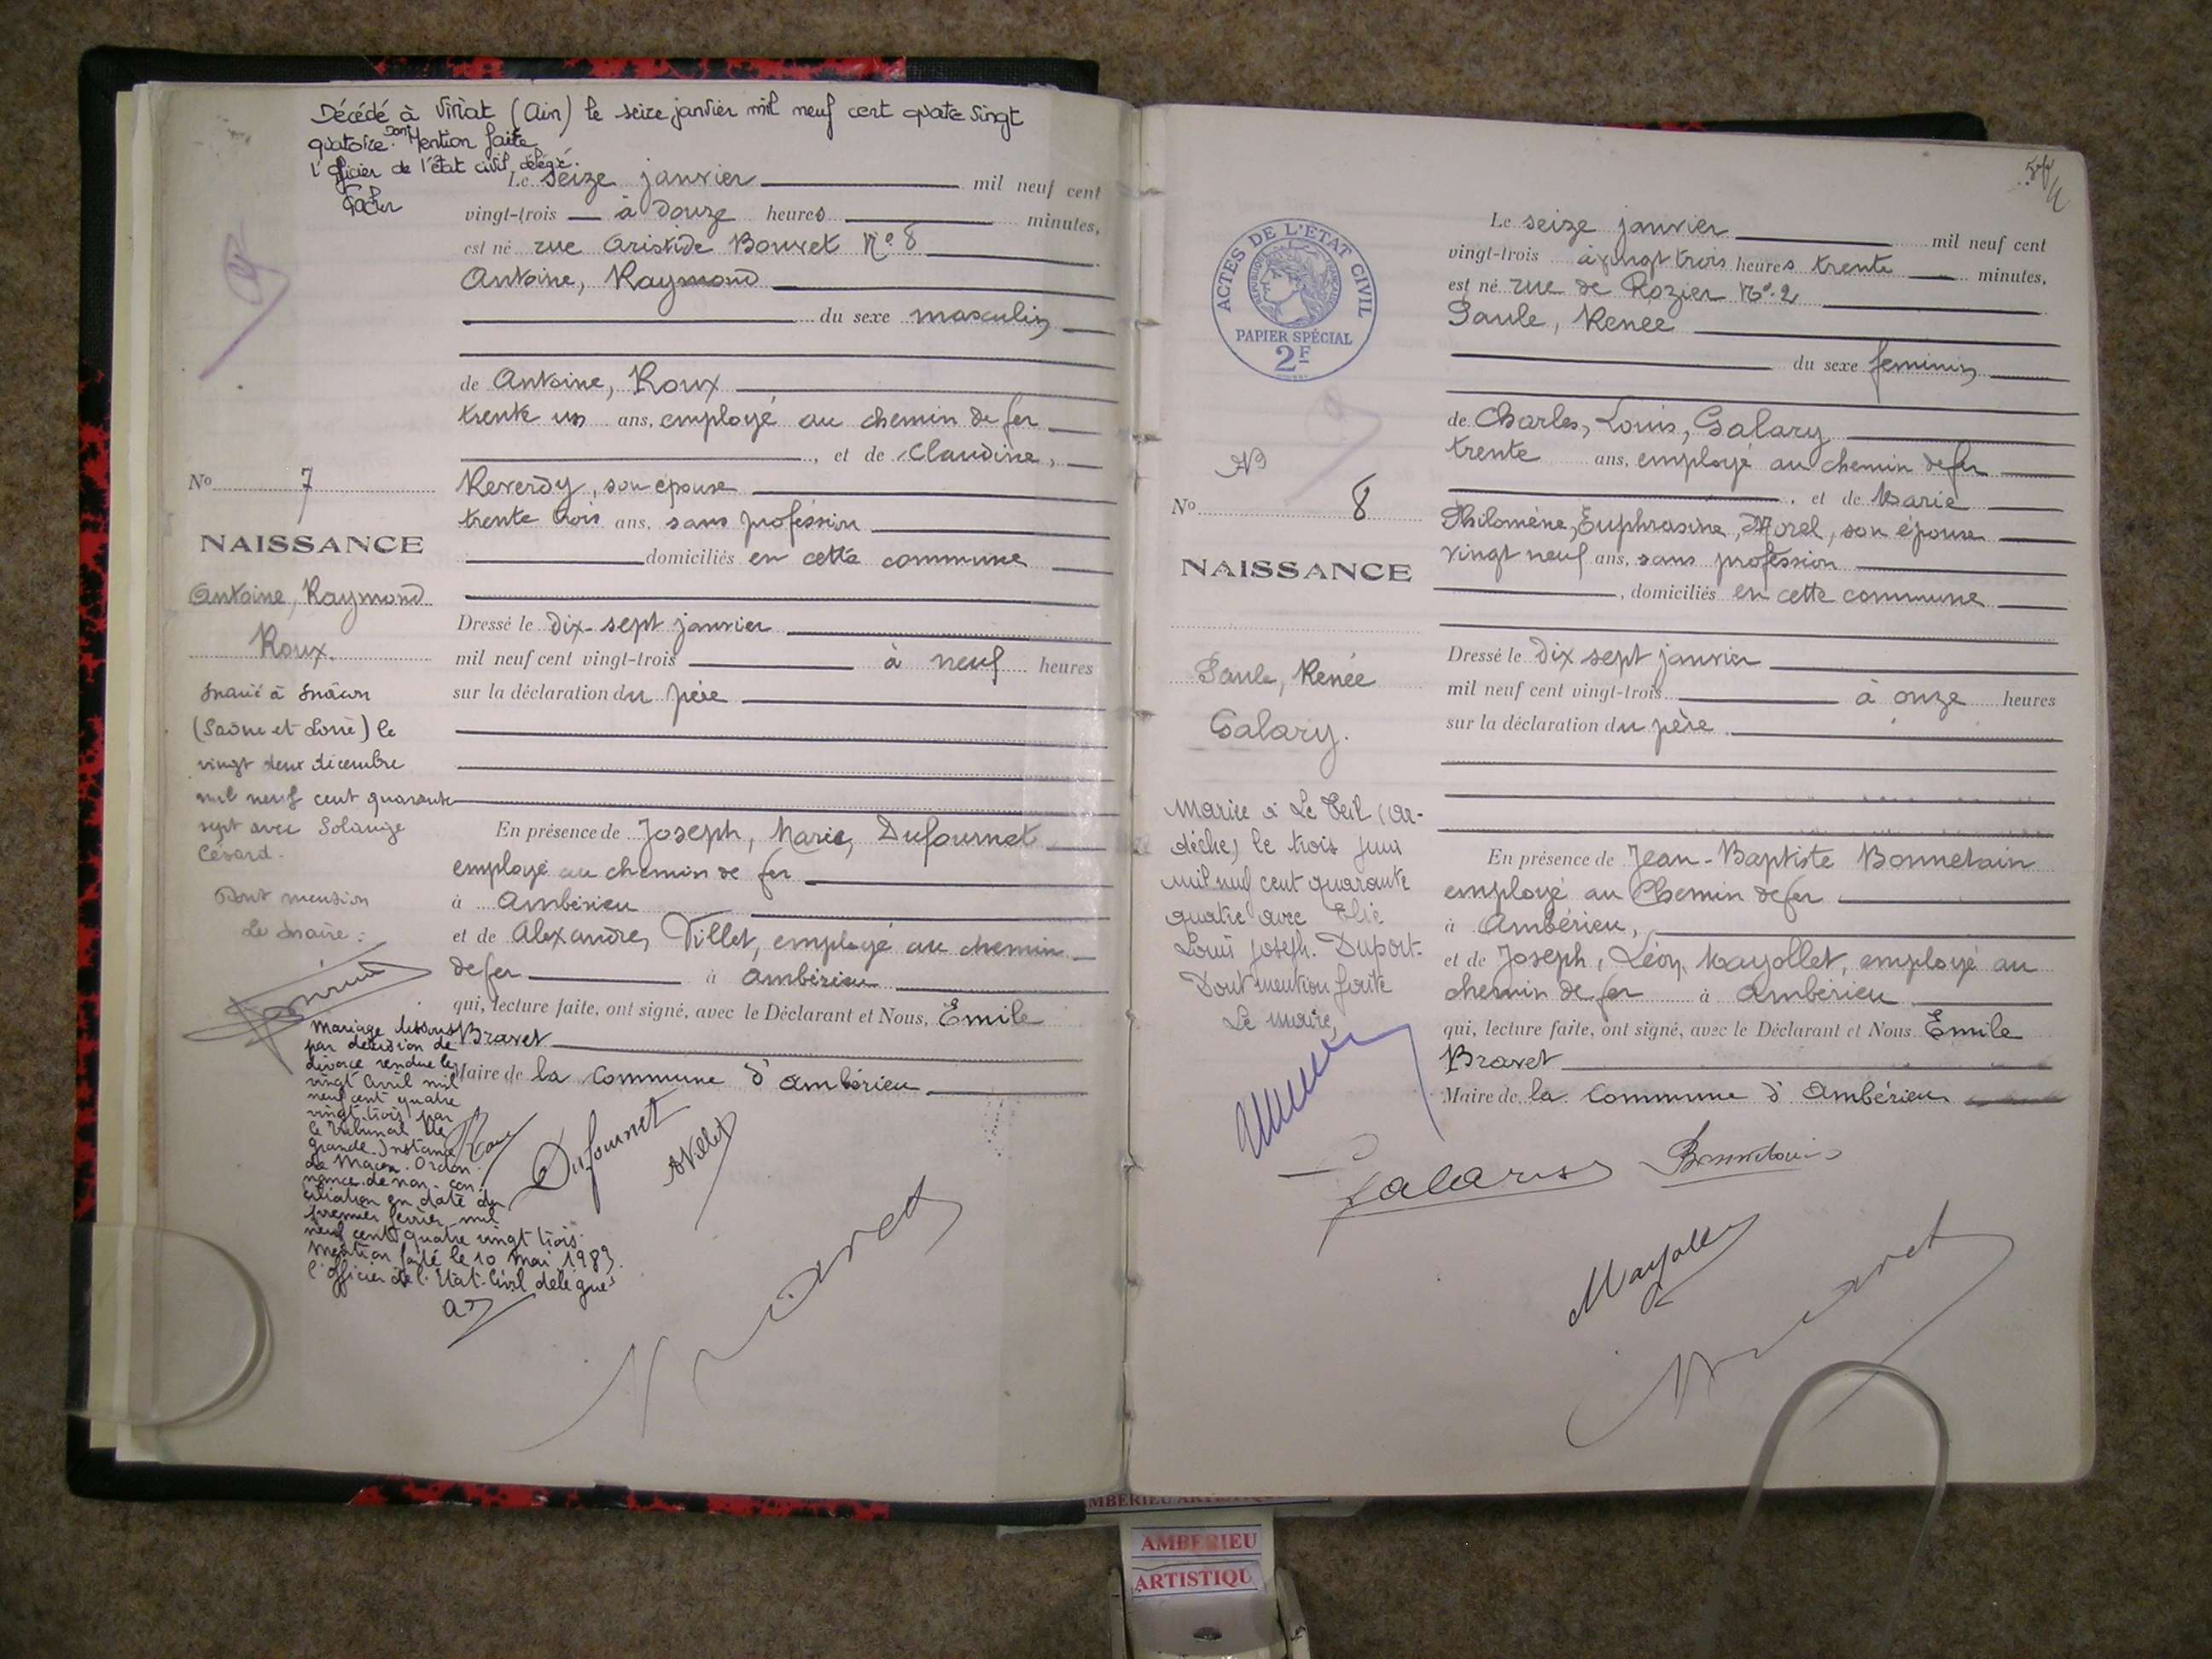 Décédé à Viriat (Ain) le seize janvier mil neuf cent quatre vingt
quatorze. Dont Mention faite
l'officier de l'état civil délégué.
Le seize janvier mil neuf cent
vingt-trois à douze heures minutes,
est né rue Aristide Bouvet No 8
Antoine, Raymond
du sexe masculin
de Antoine, Roux
trente un ans, employé au chemin de fer
, et de Claudine,
No 7
Reverdy, son épouse
trente trois ans, sans profession
NAISSANCE
domiciliés en cette commune
Antoine, Raymond
Roux.
Dressé le dix-sept janvier
mil neuf cent vingt-trois à neuf heures
sur la déclaration du père
Marié à Mâcon
(Saône et Loire) le
vingt deux décembre
mil neuf cent quarante
sept avec Solange
Césard.
Dont mention
Le Maire:
En présence de Joseph, Marie, Dufournet
employé au chemin de fer
à Ambérieu
et de Alexandre, Villet, employé au chemin
de fer à Ambérieu
qui, lecture faite, ont signé, avec le Déclarant et Nous, Emile
Bravet
Maire de la Commune d'Ambérieu
Mariage dissous
par décision de
divorce rendue le
vingt Avril mil
neuf cent quatre
vingt trois par
le Tribunal de
Grande Instance
de Macon. Ordon-
nance de non-con-
ciliation en date du
premier février mil
neuf cent quatre vingt trois.
Mention faite le 10 Mai 1983.
l'officier de l'Etat-Civil délégué
Roux
Dufournet
AVillet
Bravet
ACTES DE L'ETAT CIVIL
REPUBLIQUE FRANÇAISE
PAPIER SPÉCIAL
2F
Le seize janvier mil neuf cent
vingt-trois à vingt trois heures trente minutes,
est né rue de Rozier No. 2
Paule, Renée
du sexe feminin
de Charles, Louis, Galary
trente ans, employé au chemin de fer
, et de Marie
No 8
Philomène, Euphrasine, Morel, son épouse
vingt neuf ans, sans profession
NAISSANCE
, domiciliés en cette commune
Paule, Renée
Galary.
Dressé le dix sept janvier
mil neuf cent vingt-trois à onze heures
sur la déclaration du père
Mariée à Le Teil (Ar-
dèche) le trois juin
mil neuf cent quarante
quatre avec Elie
Louis Joseph. Duport.
Dont mention faite
Le maire,
En présence de Jean-Baptiste Bonnetain
employé au Chemin de fer
à Ambérieu,
et de Joseph, Léon, Mayollet, employé au
chemin de fer à Ambérieu
qui, lecture faite, ont signé, avec le Déclarant et Nous, Emile
Bravet
Maire de la Commune d'Ambérieu
Bonnetain
Mayollet
Bravet
AMBERIEU
ARTISTIQU